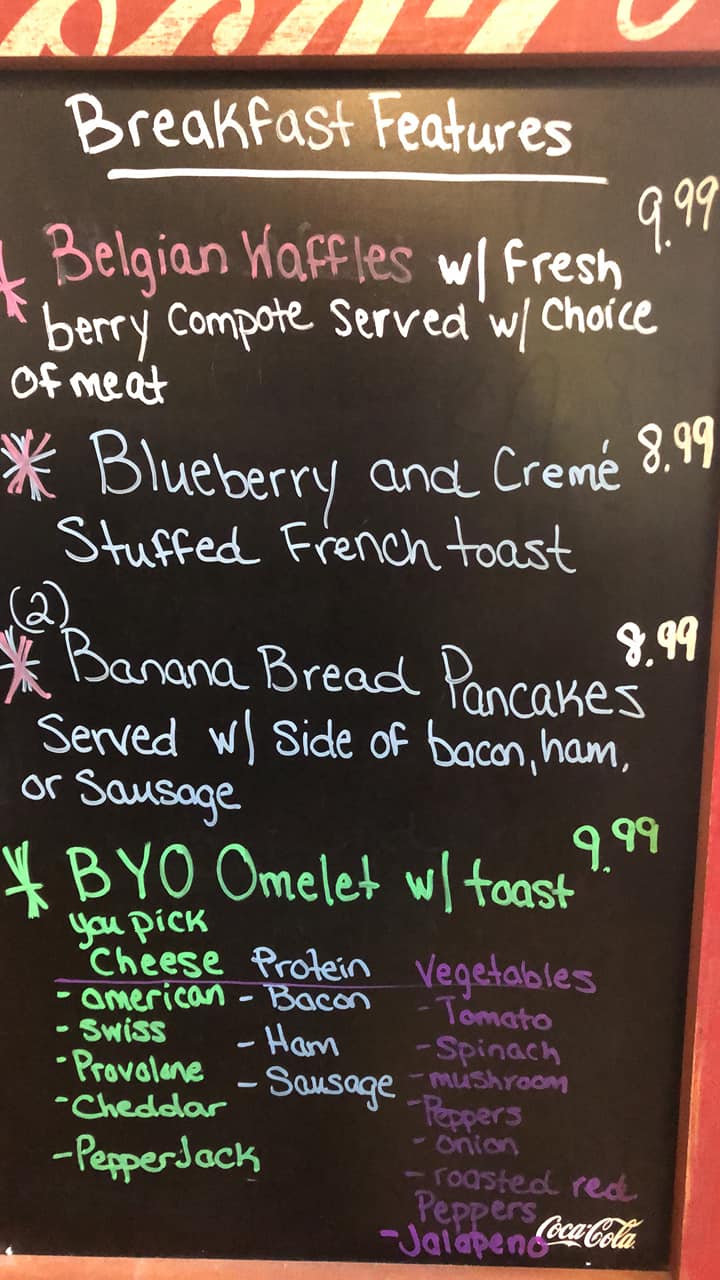 Breakfast Features
9.99
Belgian Waffles w/ fresh
berry Compote Served w/ Choice
of meat
Blueberry and Cremé 8.99
Stuffed French toast
(2)
8.99
Banana Bread Pancakes
Served w/ Side of bacon, ham,
or Sausage
9.99
BYO Omelet w/ toast
you pick
Cheese Protein Vegetables
- american - Bacon - Tomato
- Swiss - Ham - Spinach
- Provolone - Sausage - mushroom
- Cheddar - Peppers
- PepperJack - onion
- roasted red
Peppers
- Jalapeno
Coca-Cola